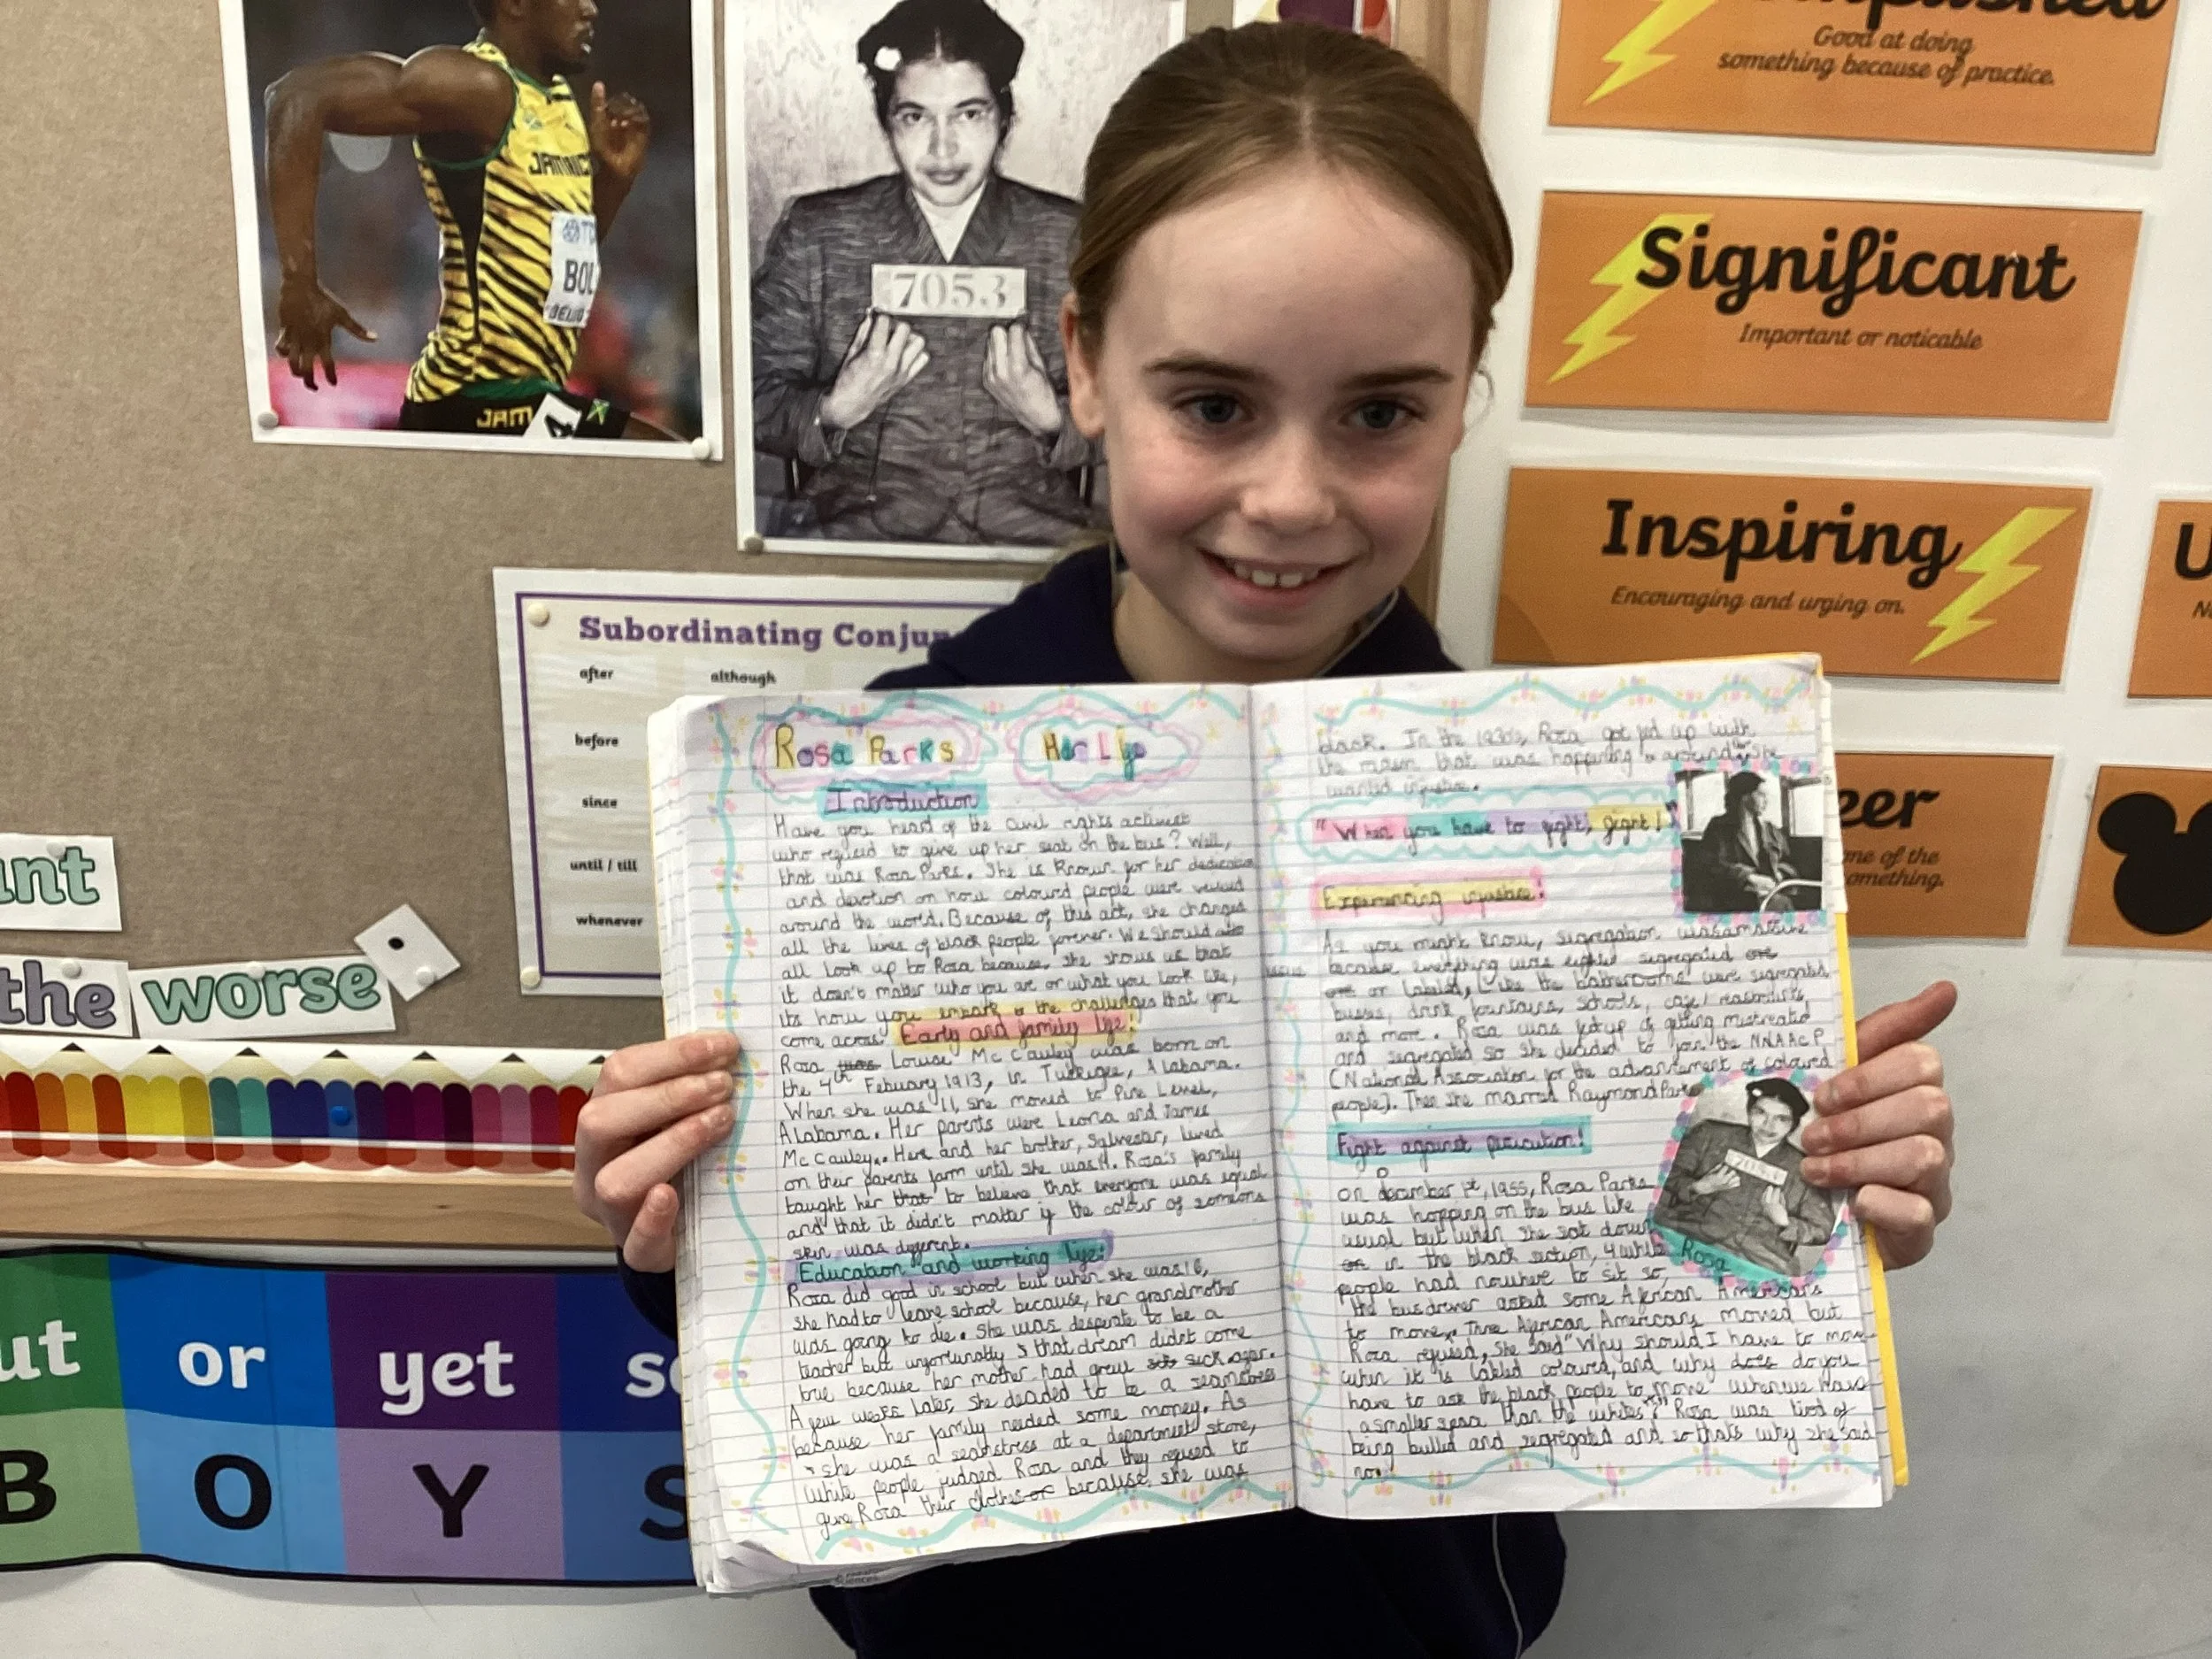 JAMAIC
BOL
BEIJING
JAM
4
7053
Good at doing
something because of practice.
Significant
Important or noticable
Inspiring
Encouraging and urging on.
U
eer
me of the
omething.
Subordinating Conjun
after although
before
since
until / till
whenever
ant
the worse
ut or yet so
B O Y S
Rosa Parks Her Life
Introduction
Have you heard of the civil rights activist
who refused to give up her seat on the bus? Well,
that was Rosa Parks. She is known for her dedication
and devotion on how coloured people were valued
around the world. Because of this act, she changed
all the lives of black people forever. We should also
all look up to Rosa because, she shows us that
it doesn't matter who you are or what you look like,
its how you embark the challenges that you
come across. Early and family life!
Rosa was Louise McCauley was born on
the 4th Febuary 1913, in Tuskegee, Alabama.
When she was 11, she moved to Pine Level,
Alabama. Her parents were Leona and James
McCauley. Here and her brother, Sylvester, lived
on their parents farm until she was 11. Rosa's family
taught her that to believe that everyone was equal
and that it didn't matter if the colour of someons
skin was different.
Education and working life:
Rosa did good in school but when she was 16,
she had to leave school because, her grandmother
was going to die. She was desperate to be a
teacher but unfortunatly that dream didn't come
true because her mother had grew sick
A few weeks later, she decided to be a seamstress
because her family needed some money. As
she was a seamstress at a department store,
white people judged Rosa and they refused to
give Rosa their clothes or because, she was
black. In the 1930s, Rosa got fed up with
the racism that was happening around She
wanted justice.
"When you have to fight, fight!"
Experiencing injustice!
As you might know, segregation was
because everything was segregated or
or labeled, Like the bathrooms were segregated
busses, drink fountains, schools, café/
and more. Rosa was fed up of getting mistreated
and segregated so she decided to join the NNAACP
(National Association for the advancement of coloured
people). Then she married Raymond Parks
Fight against persecution!
On december 1st, 1955, Rosa Parks
was hopping on the bus like
usual but when she sat down
on in the black section, 4 white
Rosa
people had nowhere to sit so,
the bus driver asked some African Americans
to move. Three African Americans moved but
Rosa refused, she said "Why should I have to move
when it is labled coloured, and why does do you
have to ask the black people to move when we have
a smaller space than the whites?" Rosa was tired of
being bullied and segregated and so thats why she said
no!